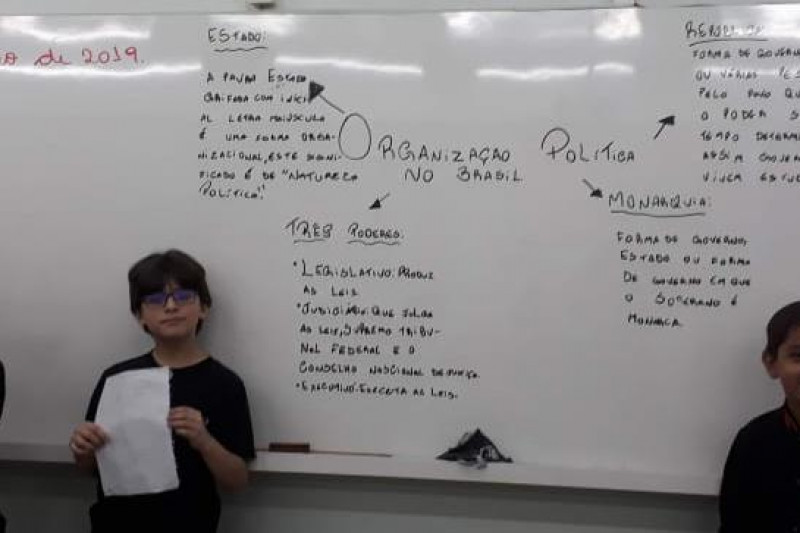 o de 2019.
ESTADO:
A PAVRA ESTADO
GRAFADA COM INICI
AL LETRA MAIÚSCULA
É UMA FORMA ORGA-
NIZACIONAL, ESTE SIGNI-
FICADO É DE "NATUREZA
POLÍTICA".
ORGANIZAÇÃO POLITICA
NO BRASIL
TRÊS PODERES:
• LEGISLATIVO: PRODUZ
AS LEIS
• JUDICIÁRIO: QUE JULGA
AS LEIS, SUPREMO TRIBU-
NAL FEDERAL E O
CONSELHO NACIONAL DE JUSTIÇA.
• EXECUTIVO: EXECUTA AS LEIS.
FORMA DE GOVERN
OU VÁRIAS PES
PELO POVO QU
O PODER S
TEMPO DETERM
ASSIM GOVERN
MONARQUIA:
FORMA DE GOVERNO,
ESTADO OU FORMA
DE GOVERNO EM QUE
O SOBERANO É
MONARCA